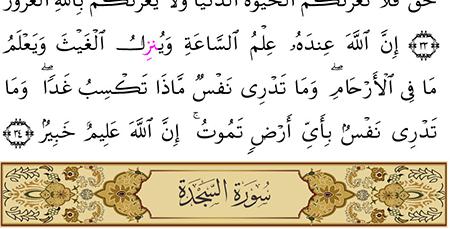 حق فلا تغرنكم الحيوة الدنيا ولا يغرنكم بالله الغرور
﴿٣٣﴾ إِنَّ اللَّهَ عِندَهُۥ عِلْمُ السَّاعَةِ وَيُنزِلُ الْغَيْثَ وَيَعْلَمُ
مَا فِى الْأَرْحَامِ ۖ وَمَا تَدْرِى نَفْسٌ مَّاذَا تَكْسِبُ غَدًا ۖ وَمَا
تَدْرِى نَفْسٌۢ بِأَىِّ أَرْضٍ تَمُوتُ ۚ إِنَّ اللَّهَ عَلِيمٌ خَبِيرٌۢ ﴿٣٤﴾
سُورَةُ السَّجْدَةِ